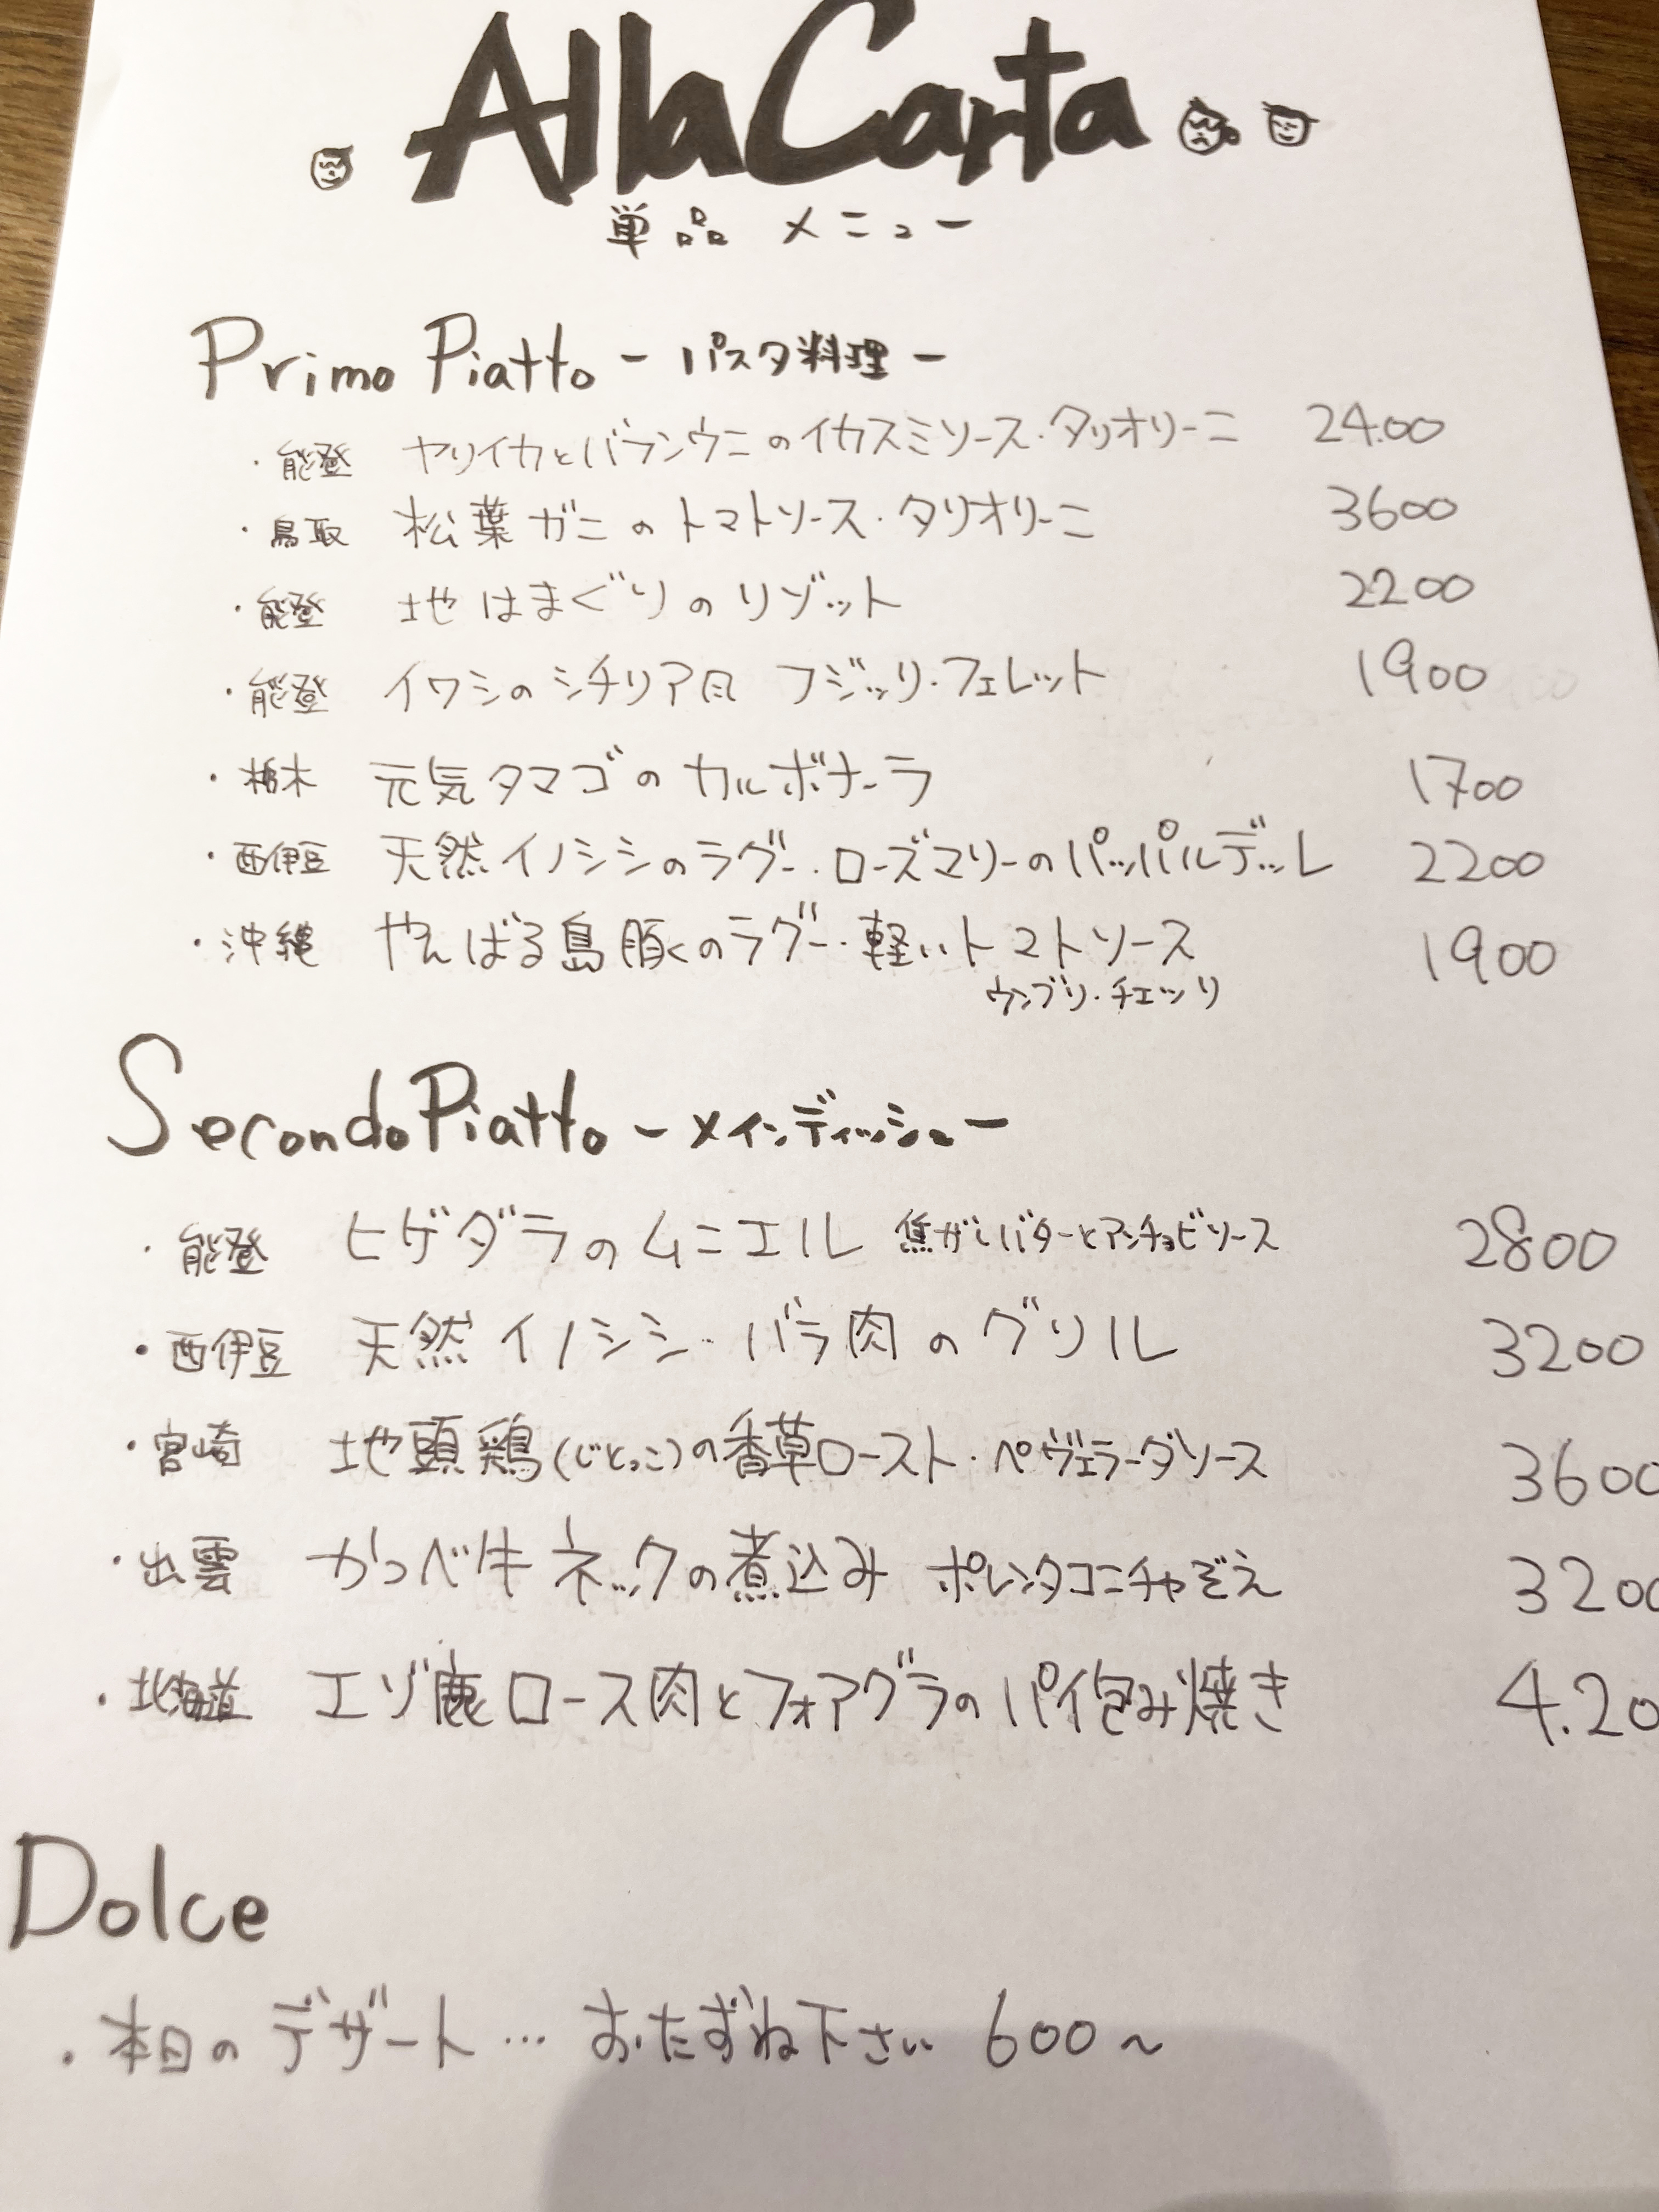 Alla Carta
単品 メニュー
Primo Piatto - パスタ料理 -
・能登 ヤリイカとバフンウニのイカスミソース・タリオリーニ 2400
・鳥取 松葉ガニのトマトソース・タリオリーニ 3600
・能登 地はまぐりのリゾット 2200
・能登 イワシのシチリア風 フジッリ・フェレット 1900
・栃木 元気タマゴのカルボナーラ 1700
・西伊豆 天然イノシシのラグー・ローズマリーのパッパルデッレ 2200
・沖縄 やんばる島豚のラグー・軽いトマトソース 1900
ウンブリ・チェッリ
Secondo Piatto - メインディッシュ -
・能登 ヒゲダラのムニエル 焦がしバターとアンチョビソース 2800
・西伊豆 天然イノシシ・バラ肉のグリル 3200
・宮崎 地頭鶏(じとっこ)の香草ロースト・ペヴェラーダソース 3600
・出雲 かつべ牛ネックの煮込み ポレンタコンチャぞえ 320
・北海道 エゾ鹿ロース肉とフォアグラのパイ包み焼き 4.20
Dolce
・本日のデザート… おたずね下さい 600〜